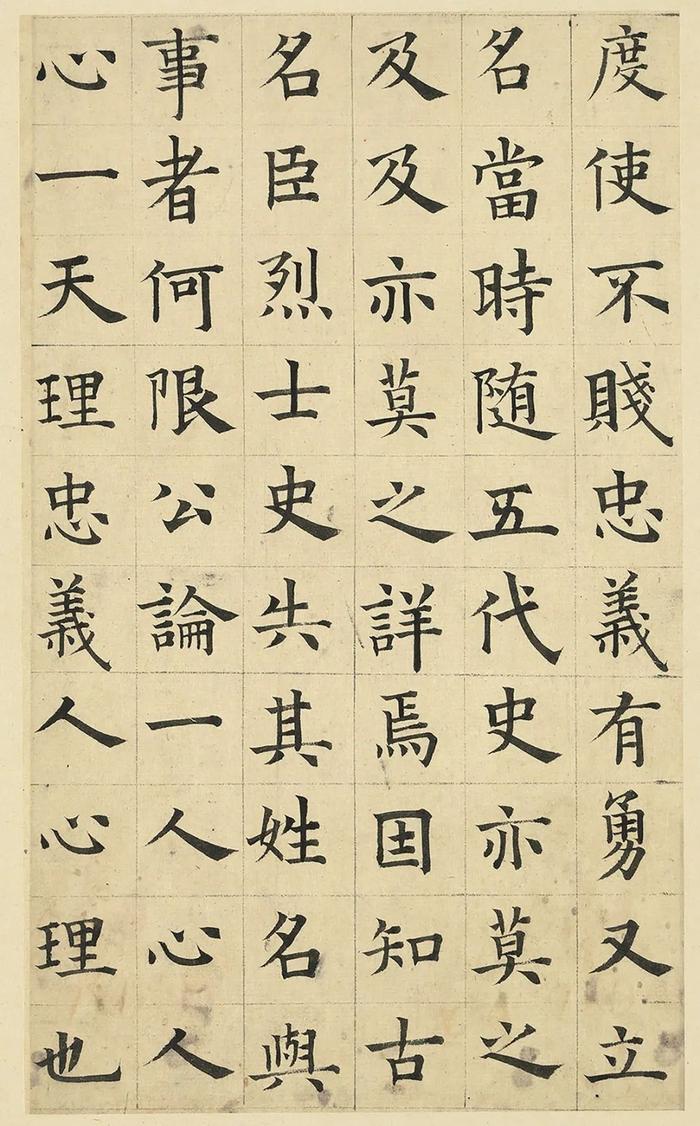 度使不賤忠義有勇又立
名當時随五代史亦莫之
及及亦莫之詳焉因知古
名臣烈士史失其姓名與
事者何限公論一人心人
心一天理忠義人心理也